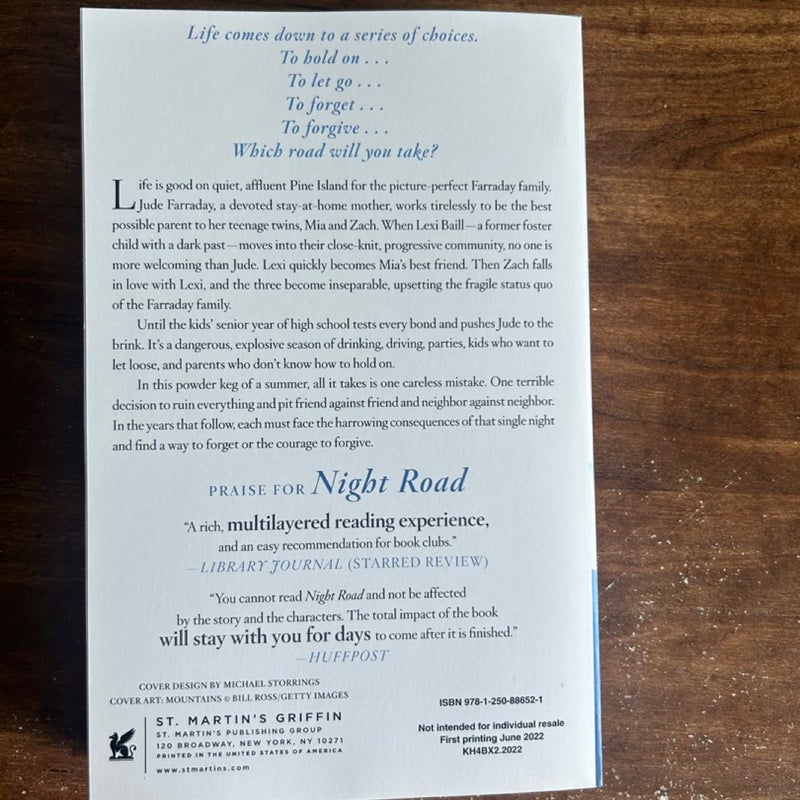 Life comes down to a series of choices.
To hold on . . .
To let go . . .
To forget . . .
To forgive . . .
Which road will you take?
Life is good on quiet, affluent Pine Island for the picture-perfect Farraday family.
Jude Farraday, a devoted stay-at-home mother, works tirelessly to be the best
possible parent to her teenage twins, Mia and Zach. When Lexi Baill—a former foster
child with a dark past—moves into their close-knit, progressive community, no one is
more welcoming than Jude. Lexi quickly becomes Mia's best friend. Then Zach falls
in love with Lexi, and the three become inseparable, upsetting the fragile status quo
of the Farraday family.
Until the kids' senior year of high school tests every bond and pushes Jude to the
brink. It's a dangerous, explosive season of drinking, driving, parties, kids who want to
let loose, and parents who don't know how to hold on.
In this powder keg of a summer, all it takes is one careless mistake. One terrible
decision to ruin everything and pit friend against friend and neighbor against neighbor.
In the years that follow, each must face the harrowing consequences of that single night
and find a way to forget or the courage to forgive.
PRAISE FOR Night Road
“A rich, multilayered reading experience,
and an easy recommendation for book clubs.”
—LIBRARY JOURNAL (STARRED REVIEW)
“You cannot read Night Road and not be affected
by the story and the characters. The total impact of the book
will stay with you for days to come after it is finished.”
—HUFFPOST
COVER DESIGN BY MICHAEL STORRINGS
COVER ART: MOUNTAINS © BILL ROSS/GETTY IMAGES
ST. MARTIN'S GRIFFIN
ST. MARTIN'S PUBLISHING GROUP
120 BROADWAY, NEW YORK, NY 10271
PRINTED IN THE UNITED STATES OF AMERICA
www.stmartins.com
ISBN 978-1-250-88652-1
Not intended for individual resale
First printing June 2022
KH4BX2.2022